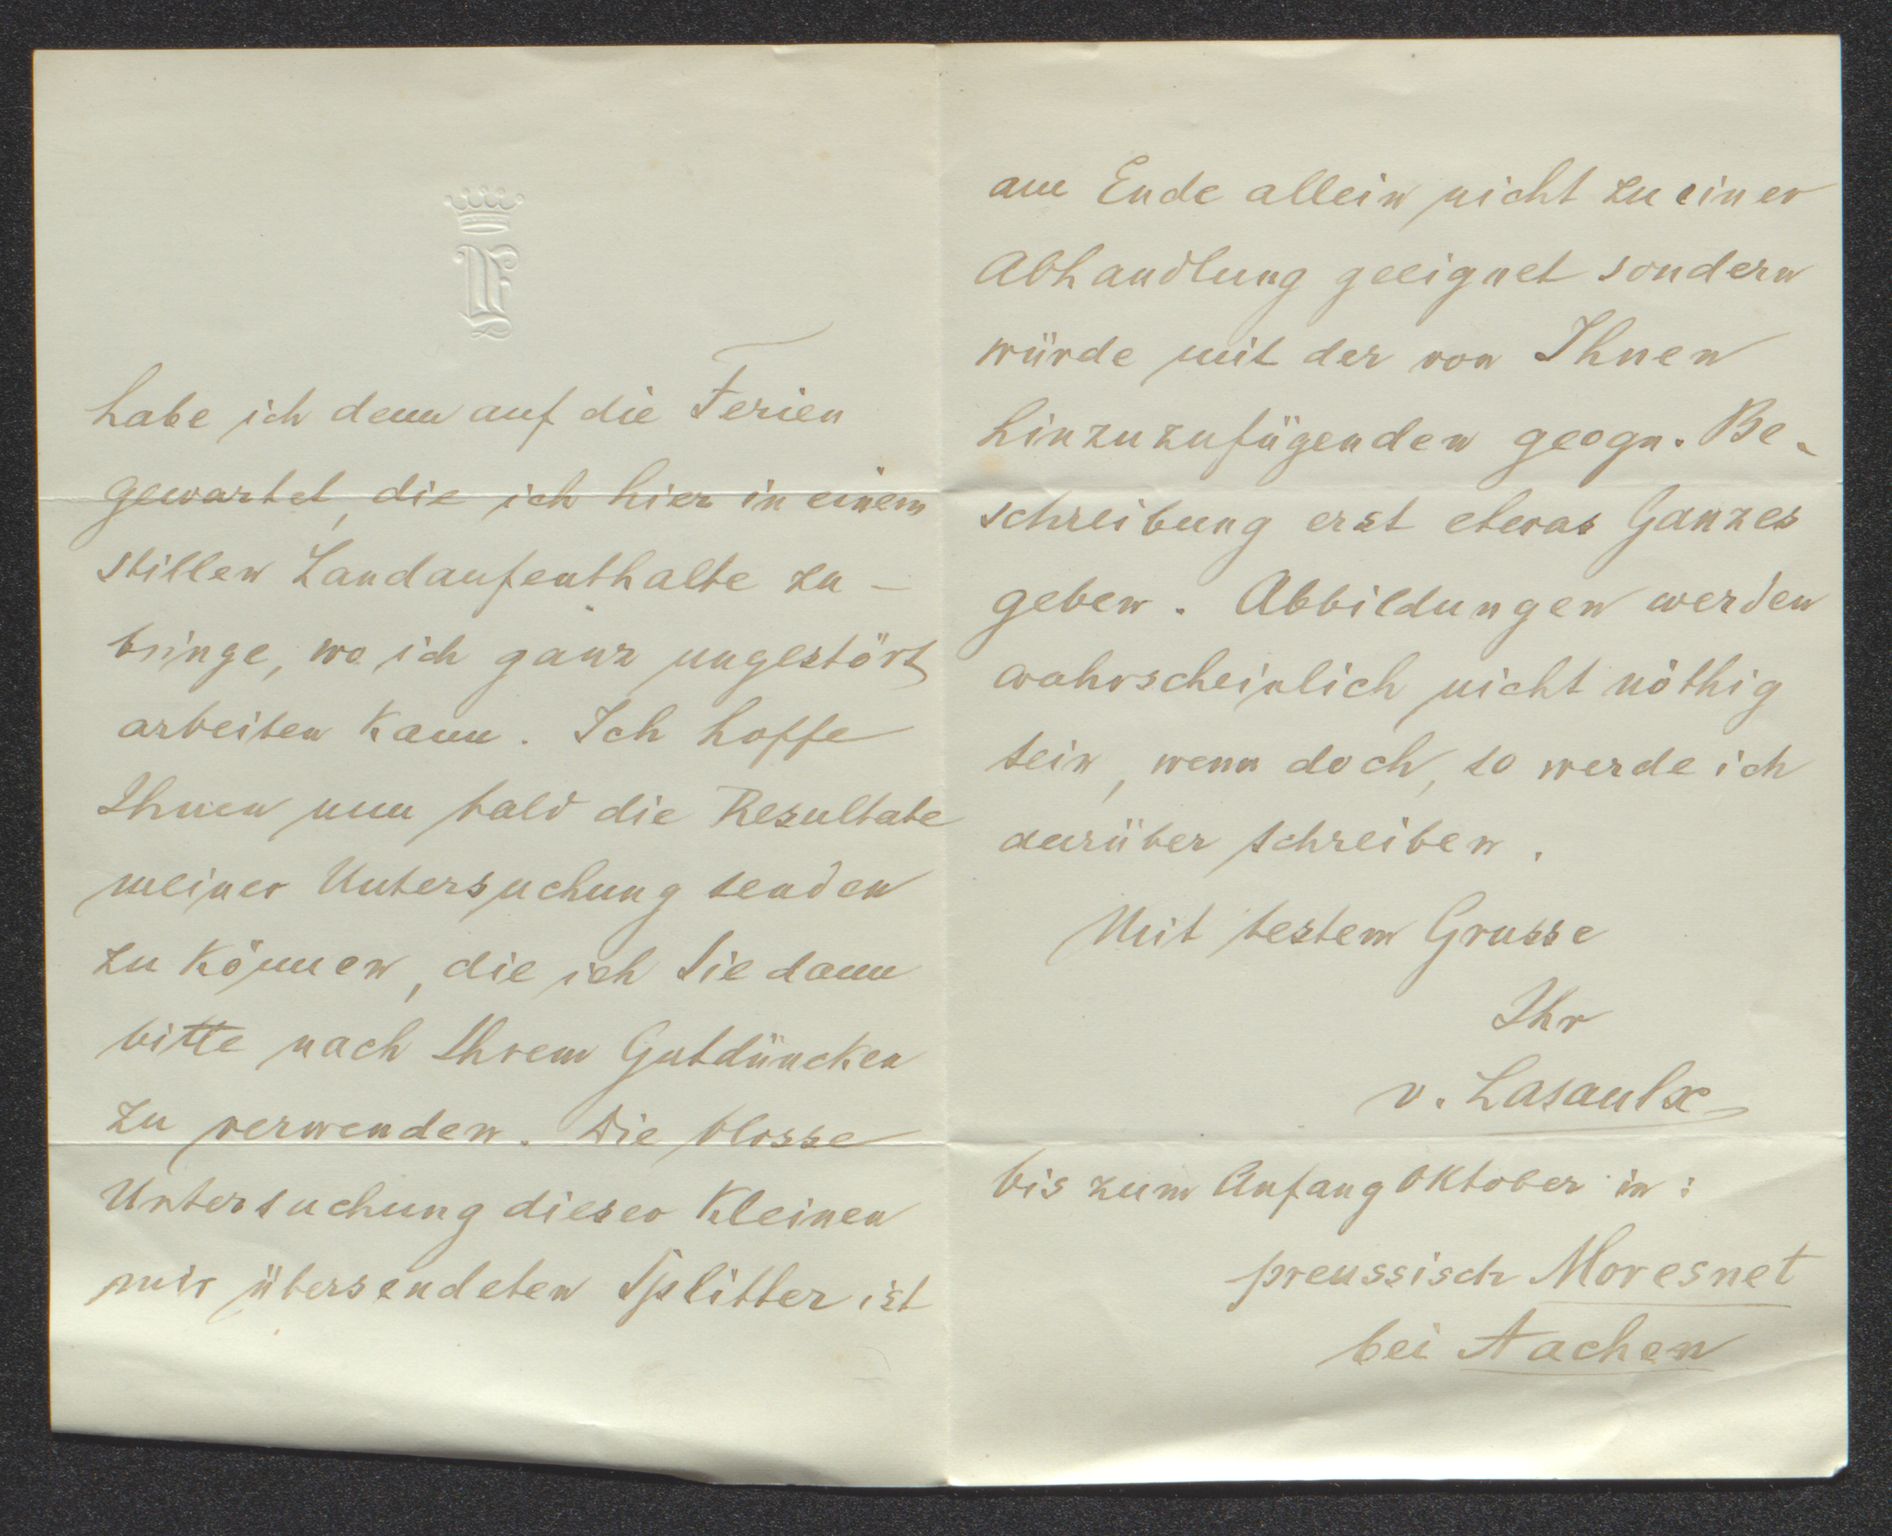 habe ich denn auf die Ferien
gewartet, die ich hier in einem
stillen Landaufenthalte zu-
bringe, wo ich ganz ungestört
arbeiten kann. Ich hoffe
Ihnen nun bald die Resultate
meiner Untersuchung senden
zu können, die ich Sie dann
bitte nach Ihrem Gutdüncken
zu verwenden. Die blosse
Untersuchung dieser kleinen
mir übersendeten Splitter ist
am Ende allein nicht zu einer
Abhandlung geeignet sondern
würde mit der von Ihnen
hinzuzufügenden geogn. Be-
schreibung erst etwas Ganzes
geben. Abbildungen werden
wahrscheinlich nicht nöthig
sein, wenn doch, so werde ich
darüber schreiben.
Mit bestem Grusse
Ihr
v. Lasaulx
bis zum Anfang Oktober in:
preussisch Moresnet
bei Aachen